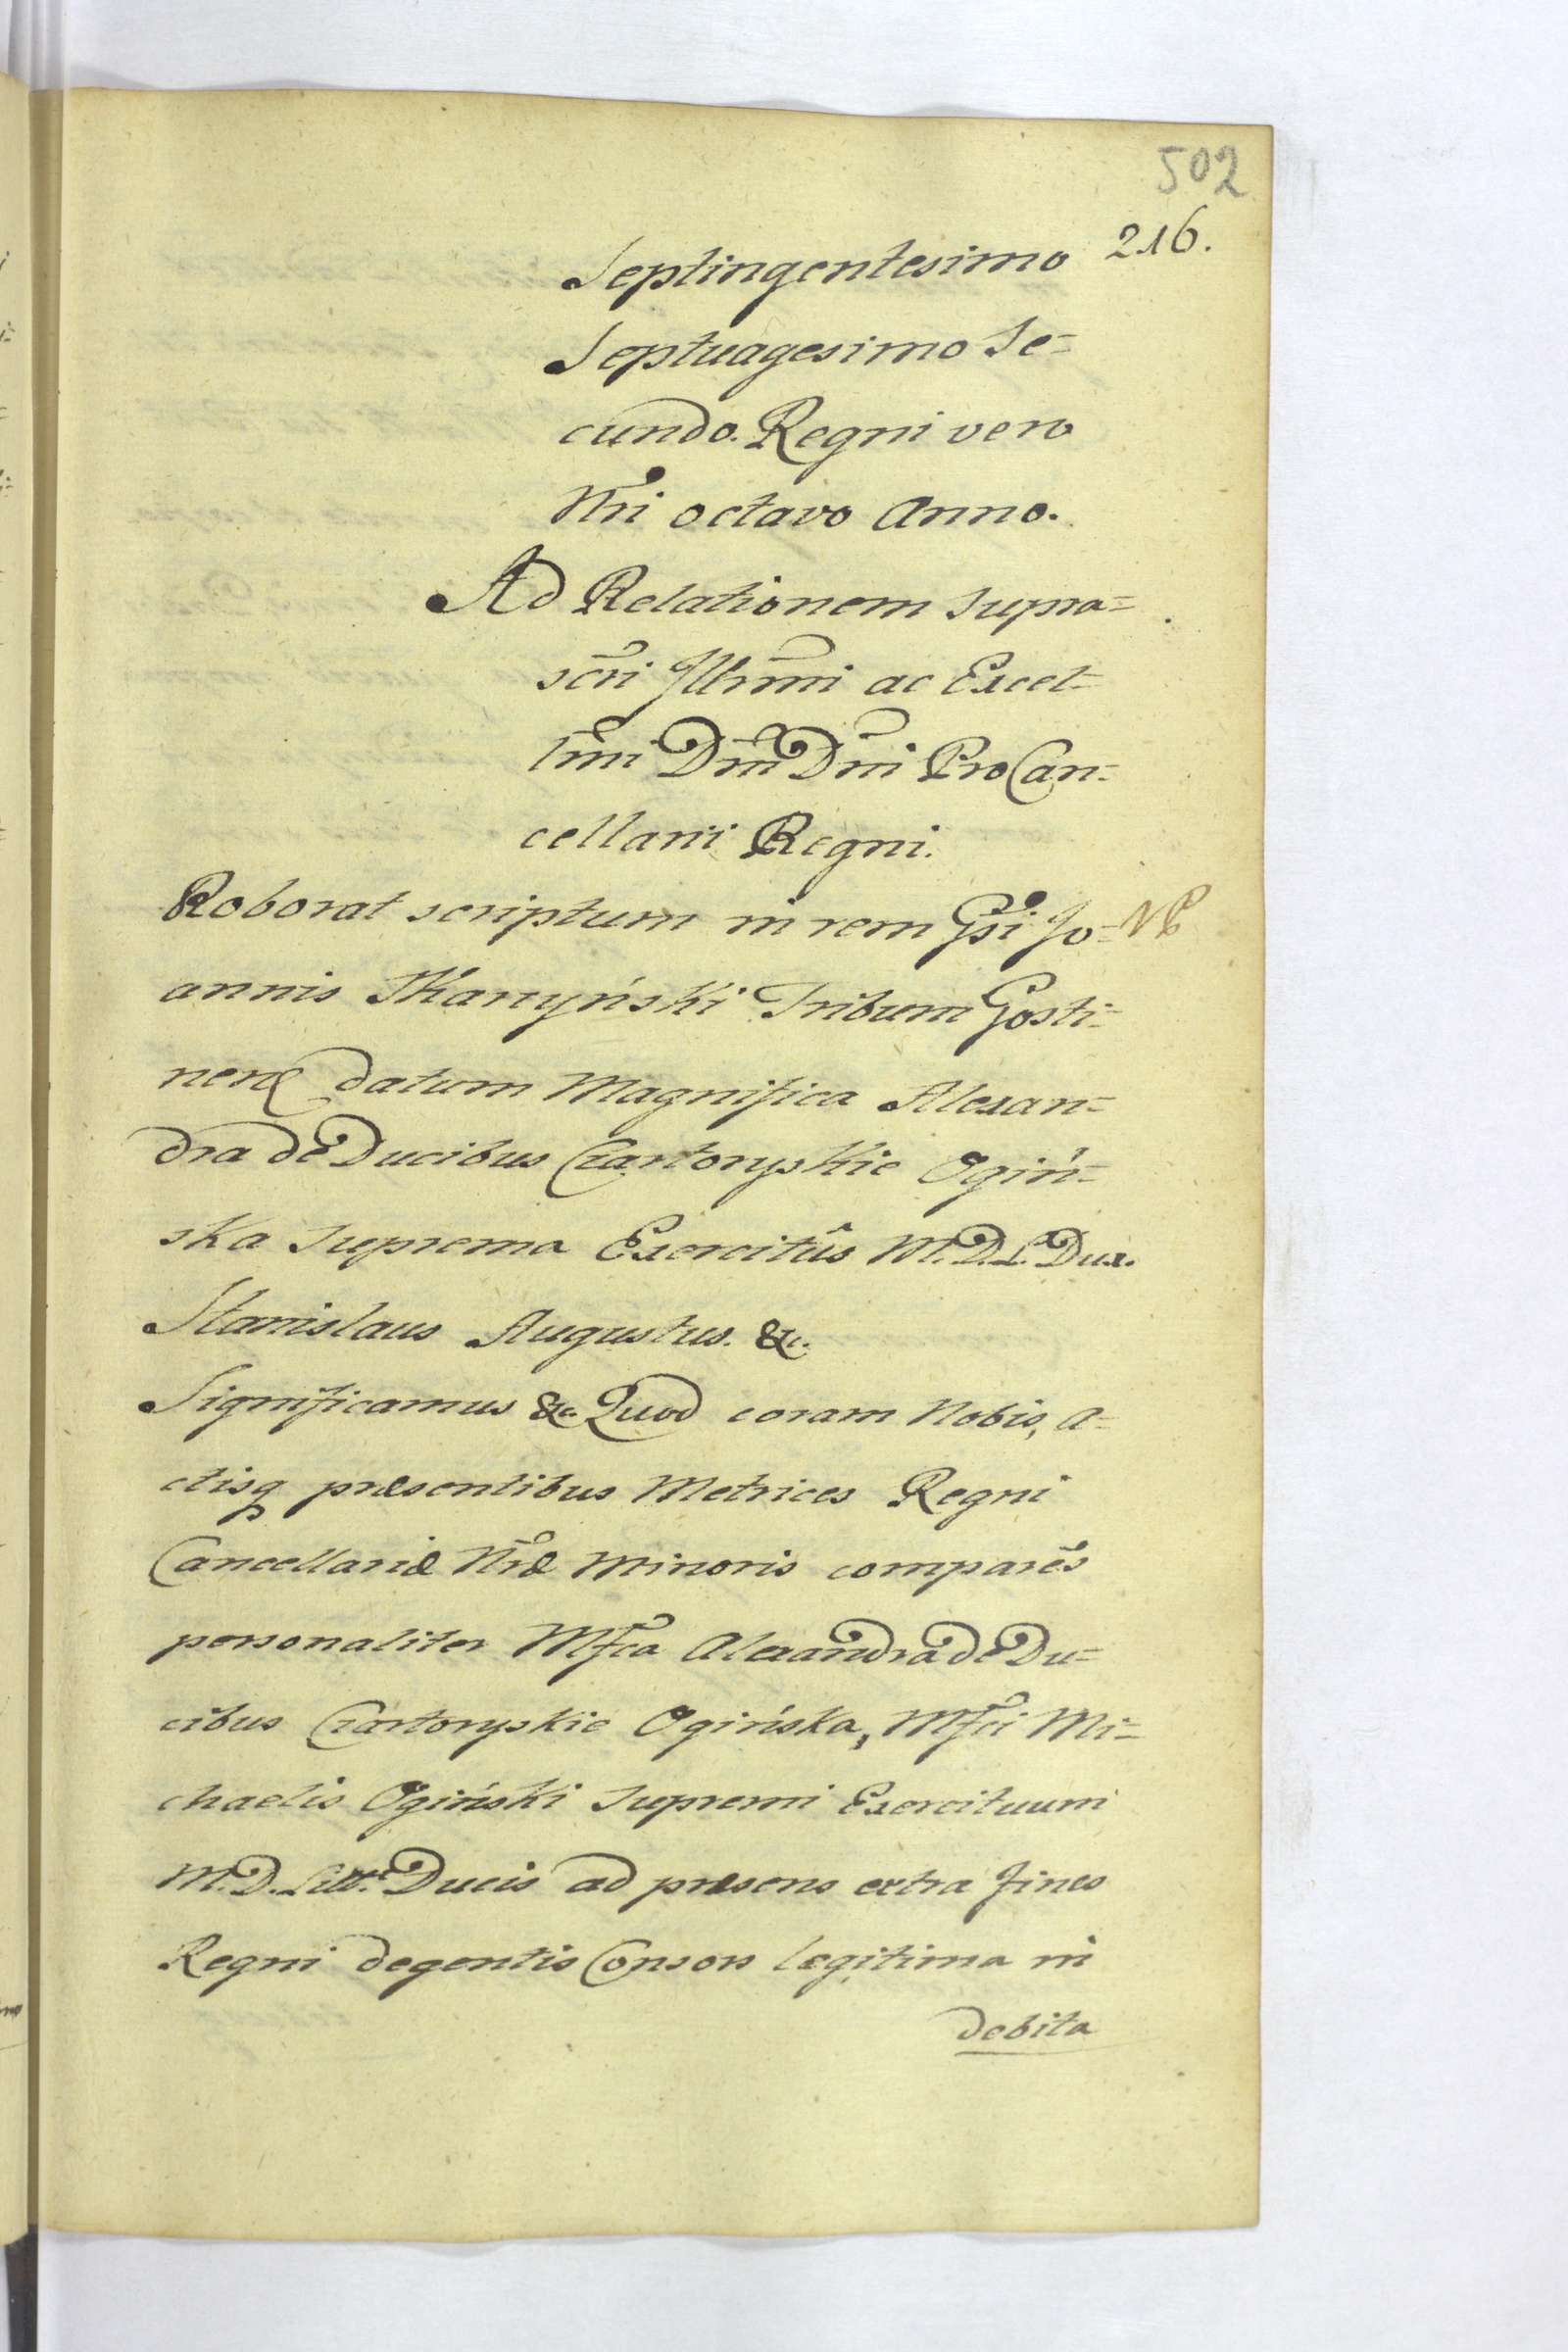 502
216.
Septingentesimo
Septuagesimo Se=
cundo. Regni vero
Nri octavo Anno.
Ad Relationem supra=
scri Illrmi ac Excel=
lmi Dni Dni Pro Can=
cellarii Regni.
Roborat scriptum in rem Gsi Jo=
annis Skarzyński Tribuni Gosti=
nen̄ datum Magnifica Alexan=
dra de Ducibus Czartoryskie Ogiń=
ska Suprema Exercitûs M. D. L. Dux.
Stanislaus Augustus. &c.
Significamus &c. Quod coram Nobis, A=
ctisq præsentibus Metrices Regni
Cancellariæ Nræ Minoris comparēs
personaliter Mfca Alexandra de Du=
cibus Czartoryskie Ogińska, Mfci Mi=
chaelis Ogiński Supremi Exercituum
M. D. Litt. Ducis ad præsens extra fines
Regni degentis Consors legitima in
debita